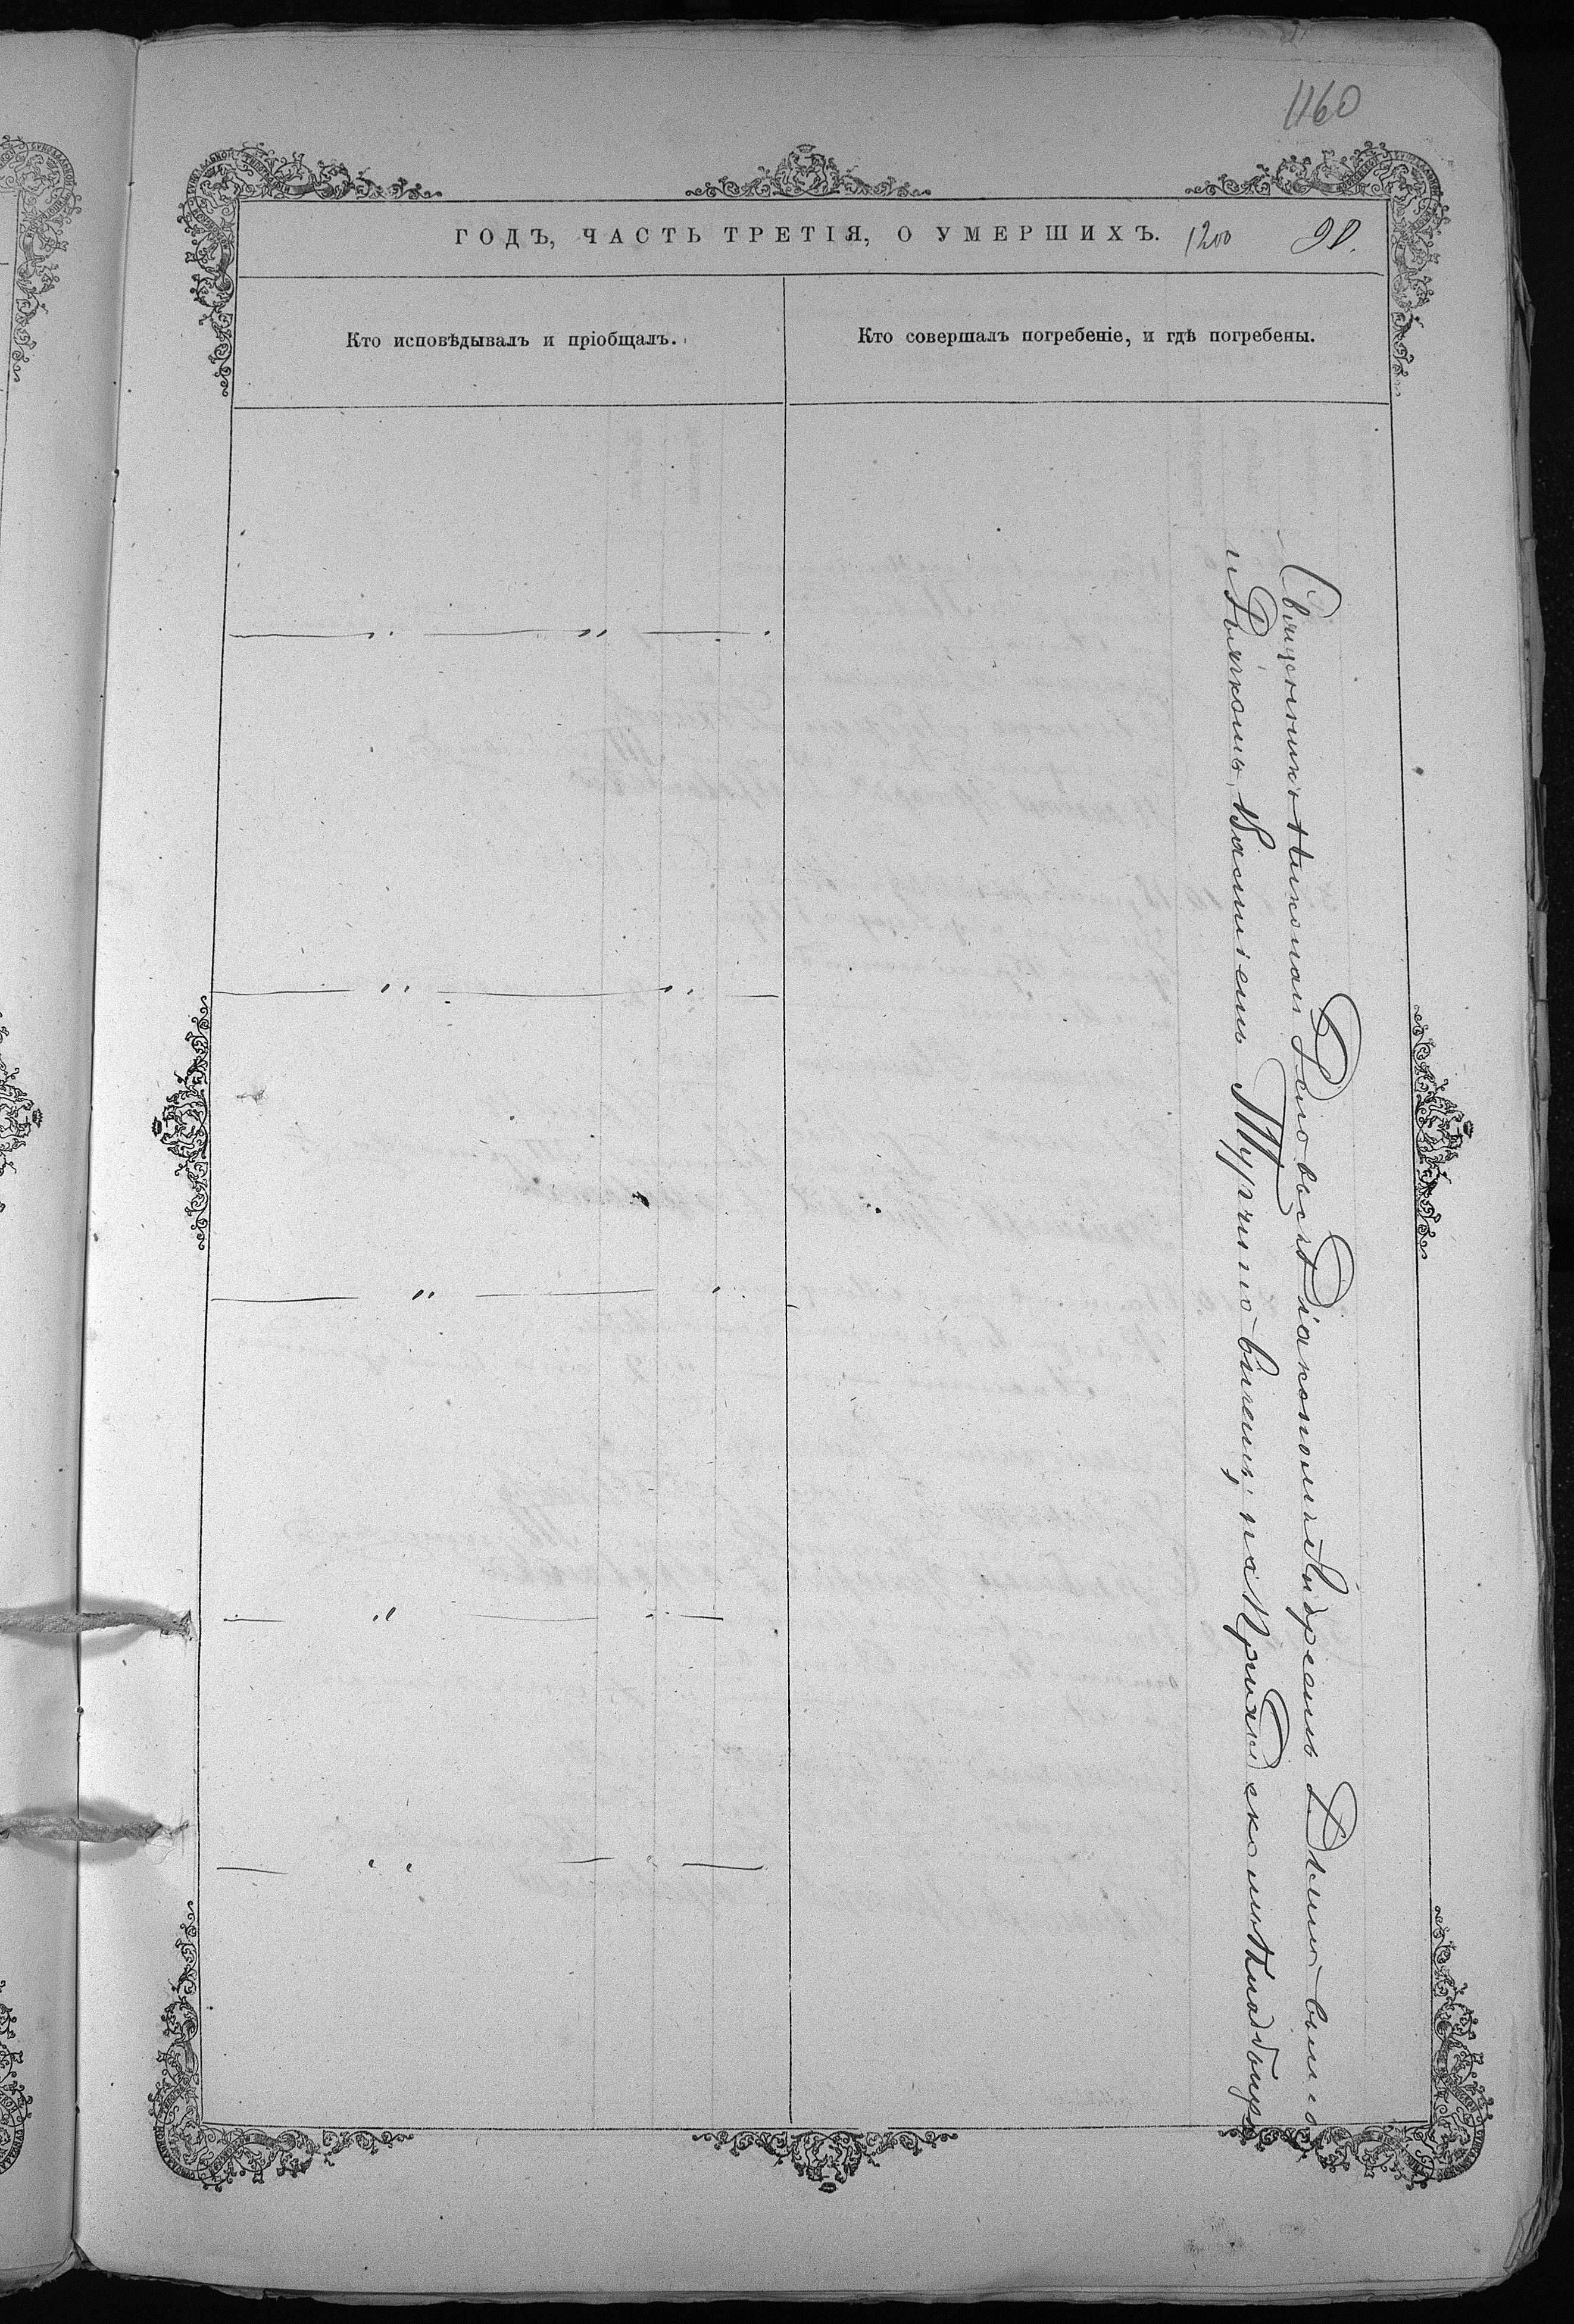 1160
ГОДЪ, ЧАСТЬ ТРЕТІЯ, О УМЕРШИХЪ. 1200 98.
Кто исповѣдывалъ и пріобщалъ.
Кто совершалъ погребеніе, и гдѣ погребены.
Священникъ Николай съ Діакономъ Андреемъ
и Дьячкомъ Василіемъ на Приходскомъ Кладбищѣ